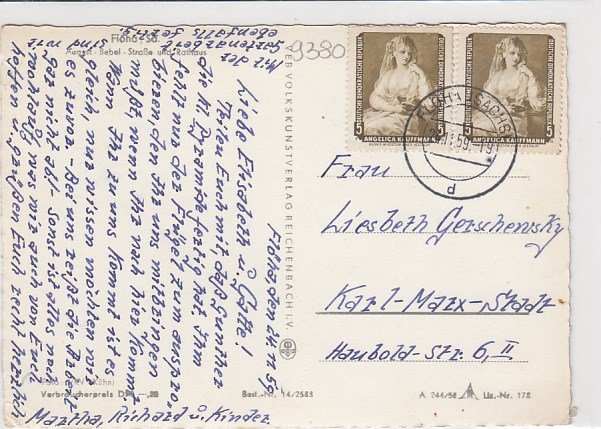 Flöha - Sa.
August-Bebel-Straße und Rathaus
9380
Mit der
ebenfalls
sind
Flöha, den 24.11.59
Liebe Elisabeth u. Gatte!
Teilen Euch mit, daß Günther
die kl. fertig hat, ihm
fehlt nur der zum
diesen, den Ihr uns mitbringen
müßt wenn Ihr nach hier kommt
Wann Ihr zu uns kommt ist es
gleich, nur wissen möchten wir
es zuvor. Bei uns reißt die Arbeit
gar nicht ab. Sonst ist alles noch
wohlauf, was wir auch von Euch
hoffen. grüßen Euch recht herzlich
Martha, Richard u. Kinder.
Verbraucherpreis DM —,20
Best.-Nr. 14/2588
VEB VOLKSKUNSTVERLAG REICHENBACH I. V.
DEUTSCHE DEMOKRATISCHE REPUBLIK
5 ANGELICA KAUFFMANN
DEUTSCHE DEMOKRATISCHE REPUBLIK
5 ANGELICA KAUFFMANN
d
Frau
Liesbeth Gerschensky
Karl-Marx-Stadt
Haubold-str. 6, II
A 246/58
Liz.-Nr. 178